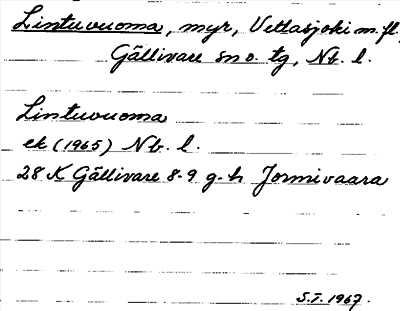 Lintuvuoma, myr, Vettasjoki m. fl.,
Gällivare sn o. tg, Nb. l.
Lintuvuoma
ek (1965) Nb. l.
28 K Gällivare 8-9 g-h Jormivaara
S.I. 1967.